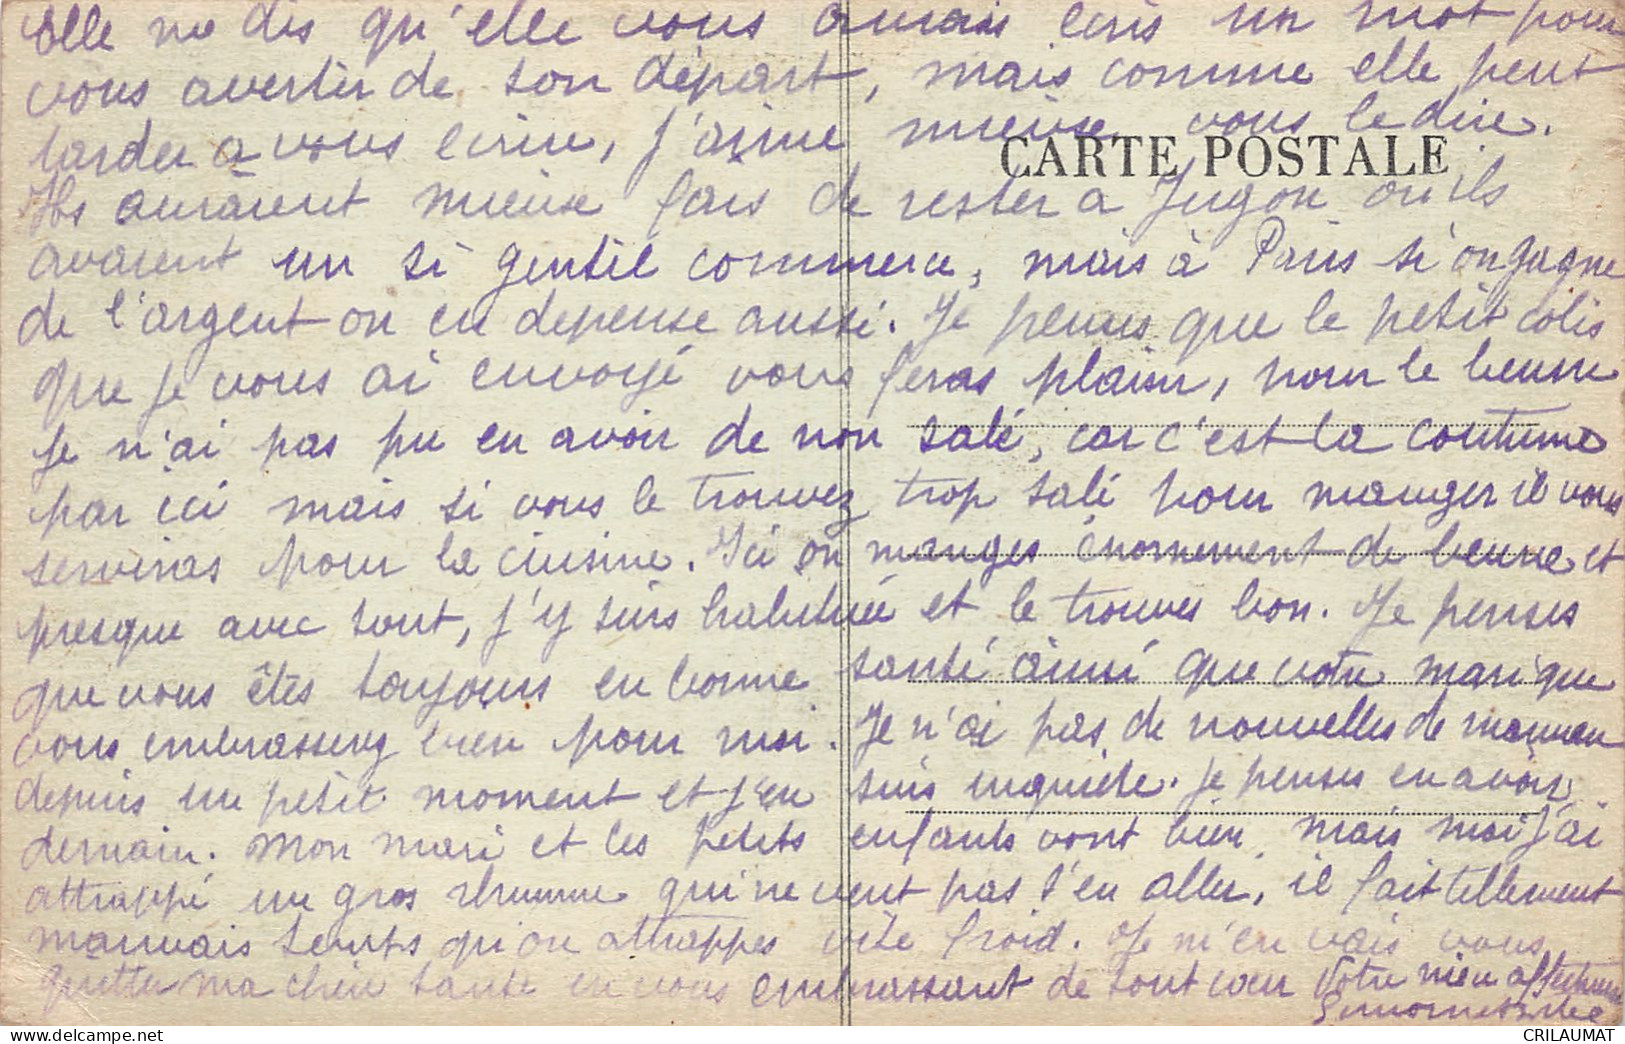 Elle me dis qu'elle vous aurais écris un mot pour
vous avertir de son départ, mais comme elle peut
tarder a vous écrire, j'aime mieux vous le dire.
CARTE POSTALE
Ils auraient mieux fais de rester a Jugon ou ils
avaient un si gentil commerce, mais à Paris si on gagne
de l'argent on en depense aussi. Je penses que le petit colis
que je vous ai envoyé vous feras plaisir, pour le beurre
je n'ai pas pu en avoir de non salé, car c'est la coutume
par ici mais si vous le trouvez trop salé pour manger il vous
serviras pour la cuisine. Ici on manges énormement de beurre et
presque avec tout, j'y suis habituée et le trouves bon. Je penses
que vous êtes toujours en bonne santé ainsi que votre mari que
vous embrasserez bien pour moi. Je n'ai pas de nouvelles de maman
depuis un petit moment et j'en suis inquiete. Je penses en avoir
demain. Mon mari et les petits enfants vont bien, mais moi j'ai
attrappé un gros rhume qui ne veut pas s'en aller, il fait tellement
mauvais temps qu'on attrappes vite froid. Je m'en vais vous
quitter ma chère tante en vous embrassant de tout cœur Votre nièce affectueuse
CRILAUMAT